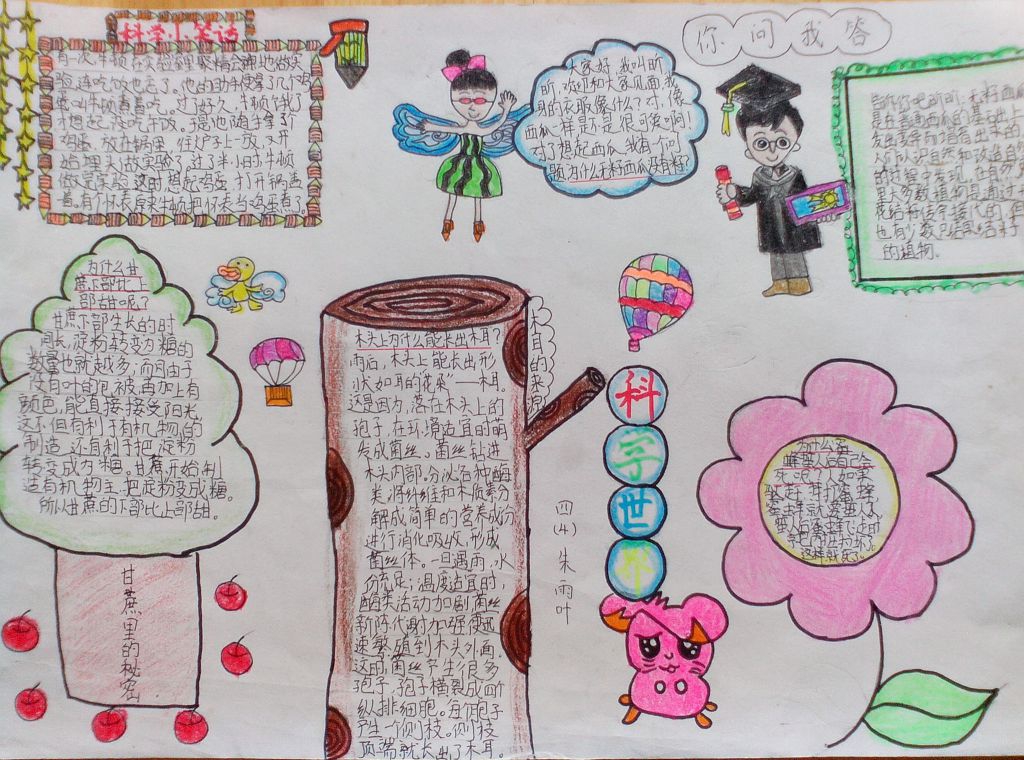 科学小笑话
有一次,牛顿在实验室里聚精会神地做实
验,连吃饭也忘了。他的助手便拿了几个鸡
过了好久,牛顿饿了
才想起没吃午饭。
鸡蛋,放在锅里,往炉子上一放,又开
始埋头做实验了。过了半小时,牛顿
做完实验,这时,想起鸡蛋,打开锅盖一
看。有个怀表,原来牛顿把怀表当鸡蛋煮了。
大家好,我叫昕
昕,欢迎和大家见面,我
的衣服像什么?对,像
西瓜一样,是不是很可爱啊!
对了,想起西瓜,我有个问
题,为什么无籽西瓜没有籽?
你问我答
无籽西瓜
是在普通西瓜的基础上
人们认识自然和改造自然
的过程中发现,在自然界
里大多数植物是通过
也有少数只结果不结籽
的植物。
为什么甘
蔗下部比上
部甜呢?
甘蔗下部生长的时
间长,淀粉转变为糖的
数量也就越多,而同由于
没有叶的包被,再加上有
颜色,能直接接受阳光,
这不但有利于有机物的
制造,还有利于把淀粉
转变成为糖。甘蔗开始制
造有机物主,把淀粉变成糖。
所以甘蔗的下部比上部甜。
甘蔗里的秘密
木头上为什么能长出木耳?
雨后,木头上能长出形
状如耳的“花朵”——木耳。
这是因为,落在木头上的
孢子,在环境适宜时萌
发成菌丝。菌丝钻进
木头内部,分泌各种酶
类,将纤维和木质素分
解成简单的营养成分
进行消化吸收,形成
菌丝体。一旦遇雨,水
分充足,温度适宜时,
酶类活动加剧,菌丝
新陈代谢加强,便迅
速繁殖到木头外面。
这时,菌丝产生很多
孢子,孢子横裂成四个
纵排细胞。每个孢子
产生一个侧枝。侧枝
顶端就长出了木耳。
木耳的来源
四(4)朱雨叶
科学世界
为什么蜜
蜂蜇人后自己会
死呢?人如果
这样就死了。